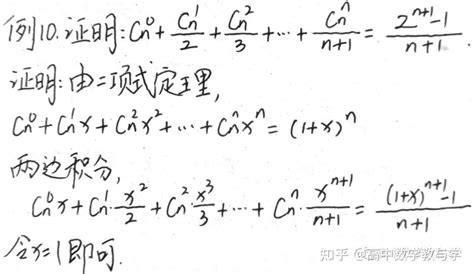 例10.证明:Cn⁰+Cn¹/2+Cn²/3+⋯+Cnⁿ/(n+1)=(2ⁿ⁺¹-1)/(n+1).
证明:由二项式定理,
Cn⁰+Cn¹x+Cn²x²+⋯+Cnⁿxⁿ=(1+x)ⁿ
两边积分,
Cn⁰x+Cn¹·x²/2+Cn²·x³/3+⋯+Cnⁿ·xⁿ⁺¹/(n+1)=((1+x)ⁿ⁺¹-1)/(n+1)
令x=1即可.
知乎 @高中数学教与学